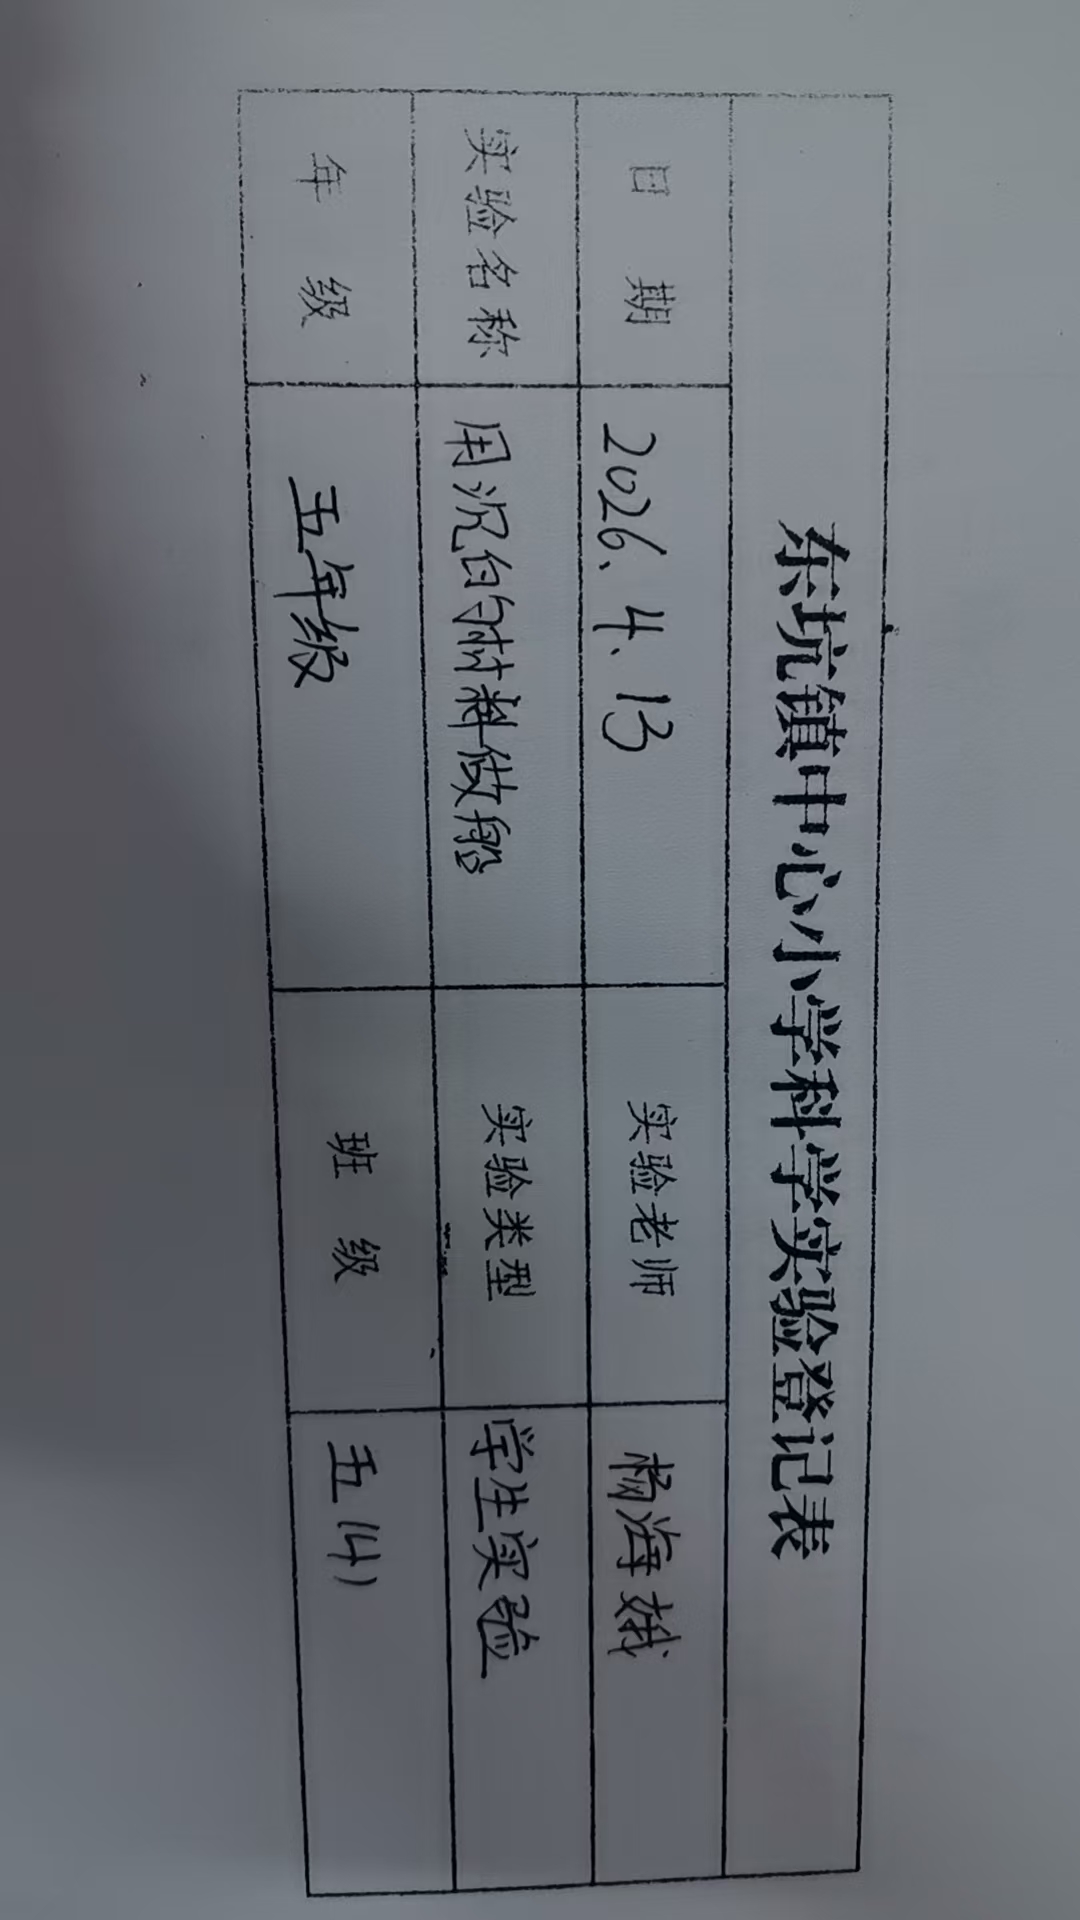 东坑镇中心小学科学实验登记表
日期 2026、4、13 实验老师 杨海娥
实验名称 用沉的材料做船 实验类型 学生实验
年级 五年级 班级 五(4)